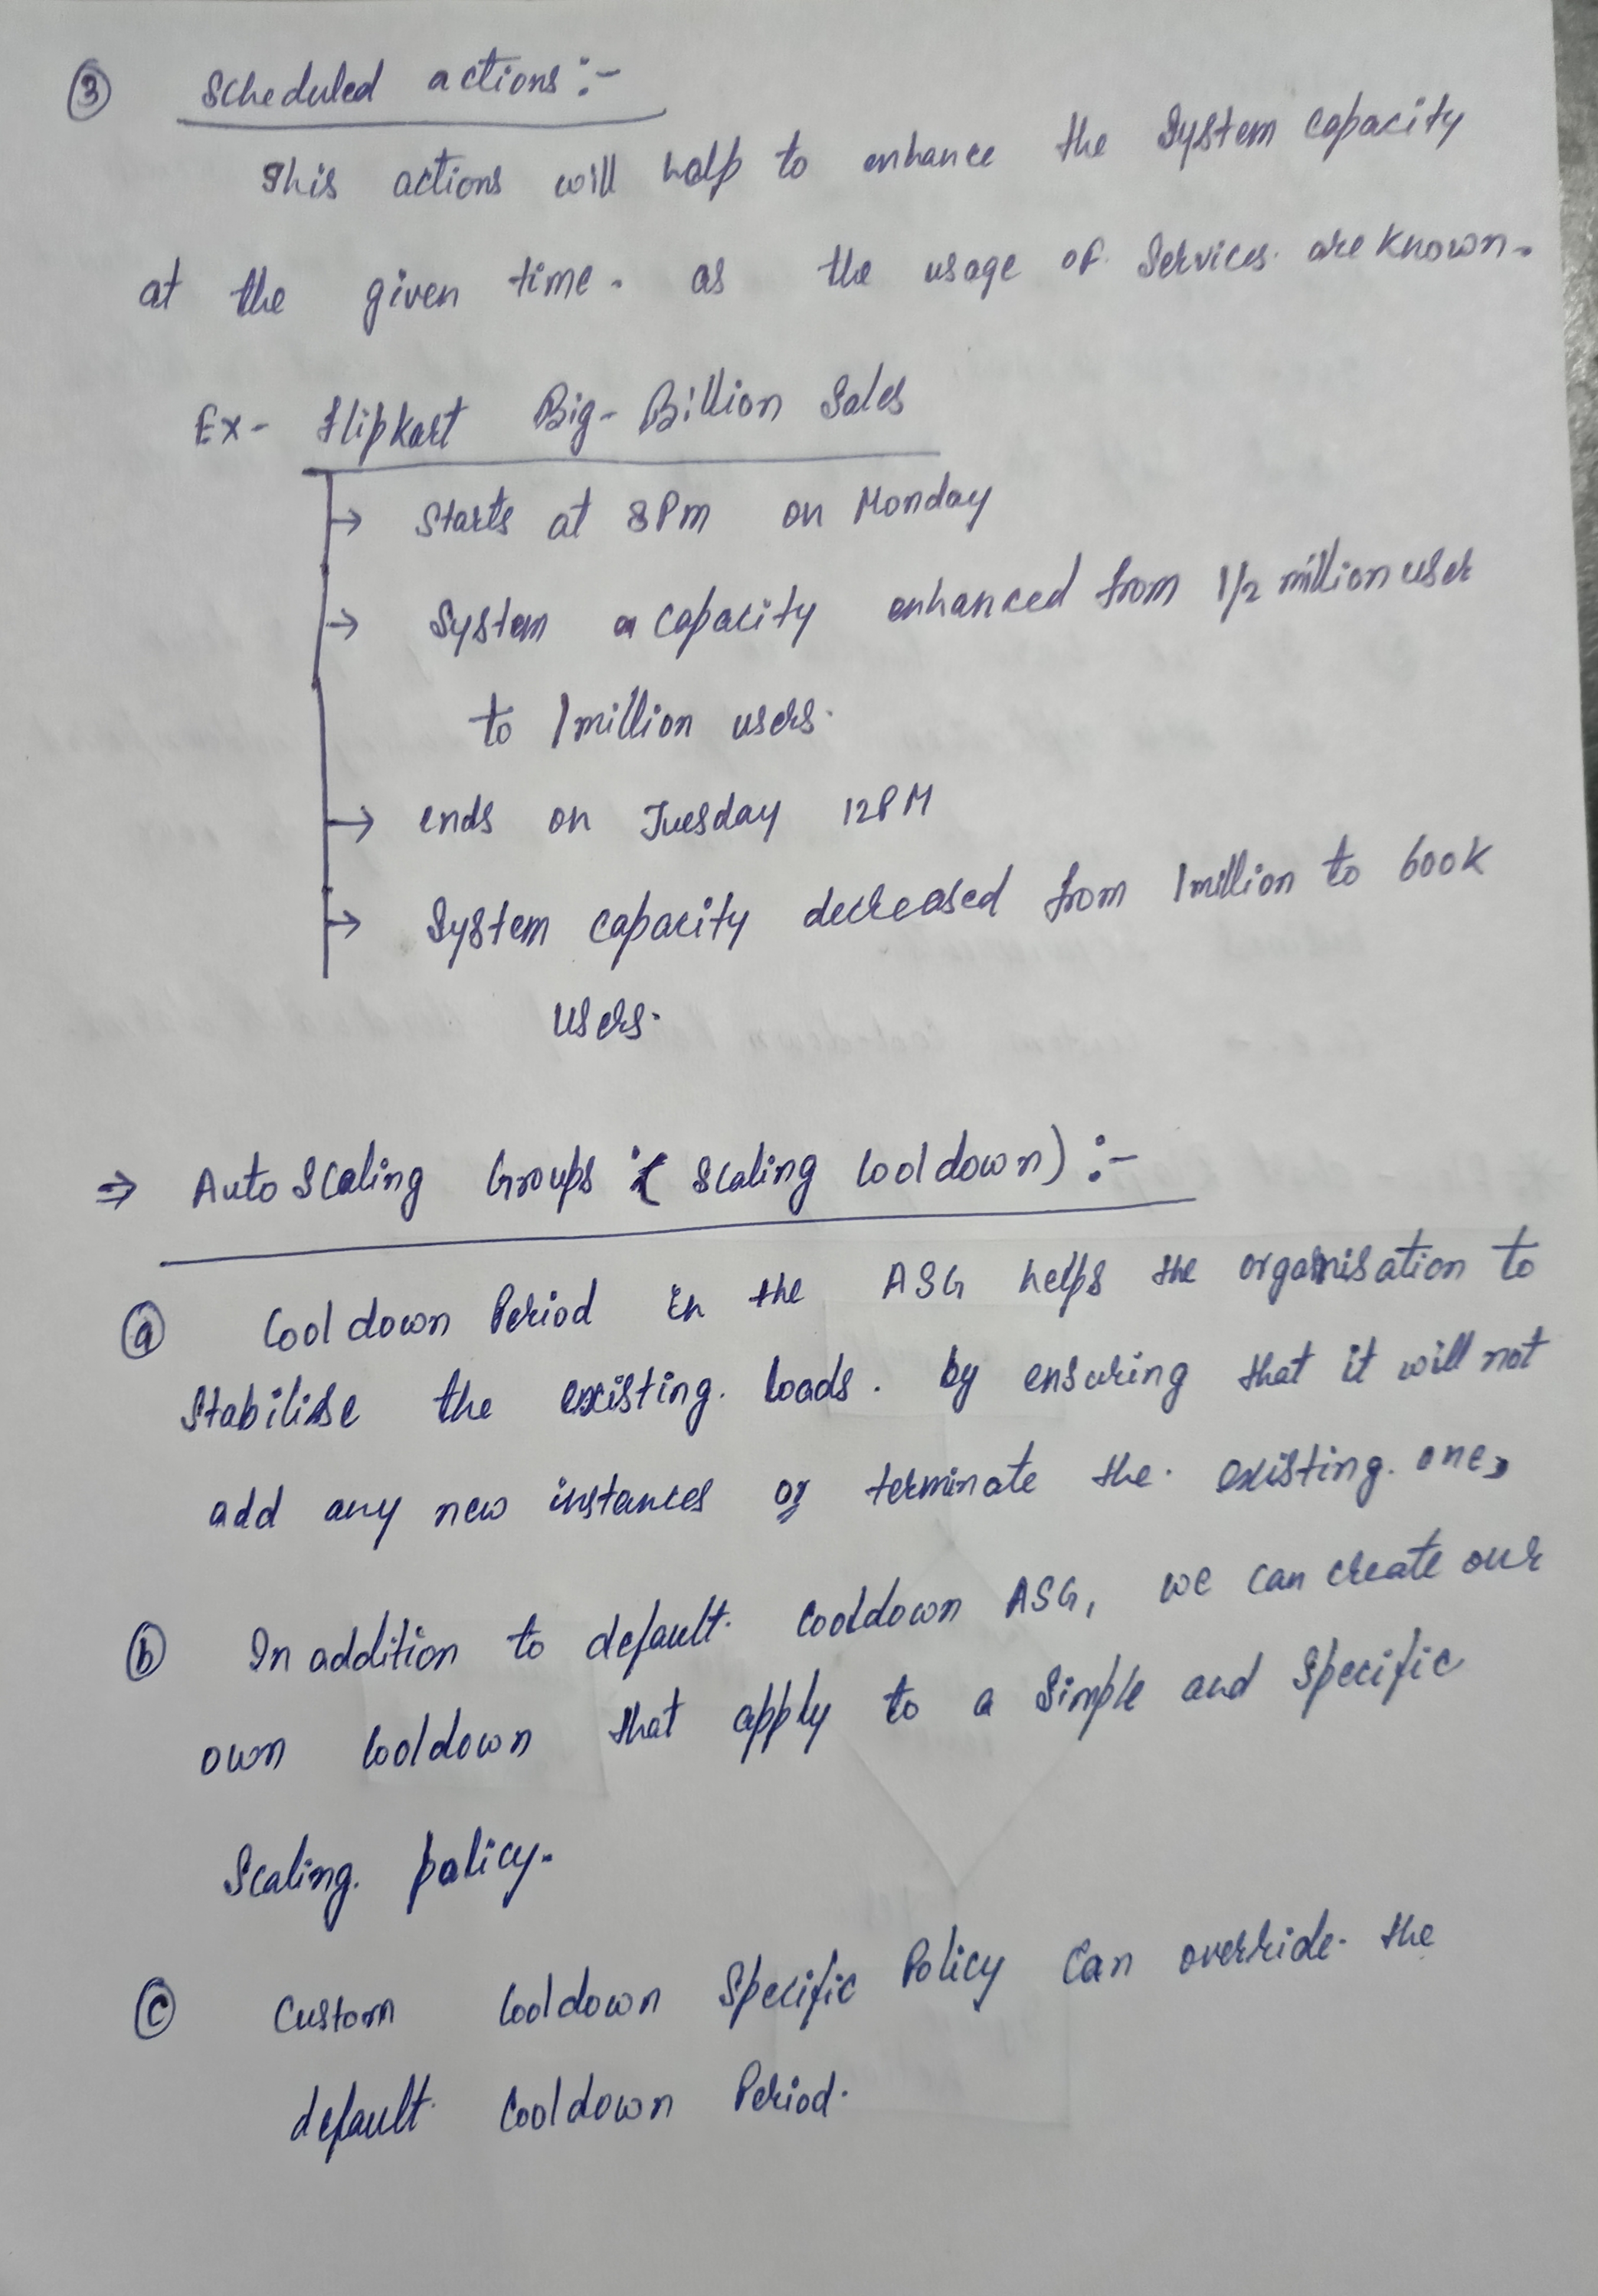 ③ Scheduled actions :-
This actions will help to enhance the System capacity
at the given time. as the usage of Services. are known.
Ex- Flipkart Big-Billion Sales
→ Starts at 8Pm on Monday
→ System capacity enhanced from 1/2 million user
to 1 million users.
→ ends on Tuesday 12PM
→ System capacity decreased from 1 million to 600K
users.
⇒ Auto Scaling Groups ( Scaling Cooldown) :-
ⓐ Cooldown Period in the ASG helps the organisation to
Stabilise the existing. loads. by ensuring that it will not
add any new instances or terminate the. existing. one,
ⓑ In addition to default. Cooldown ASG, we can create our
own Cooldown that apply to a Simple and Specific
Scaling. policy.
ⓒ Custom Cooldown Specific Policy Can override. the
default. Cooldown Period.